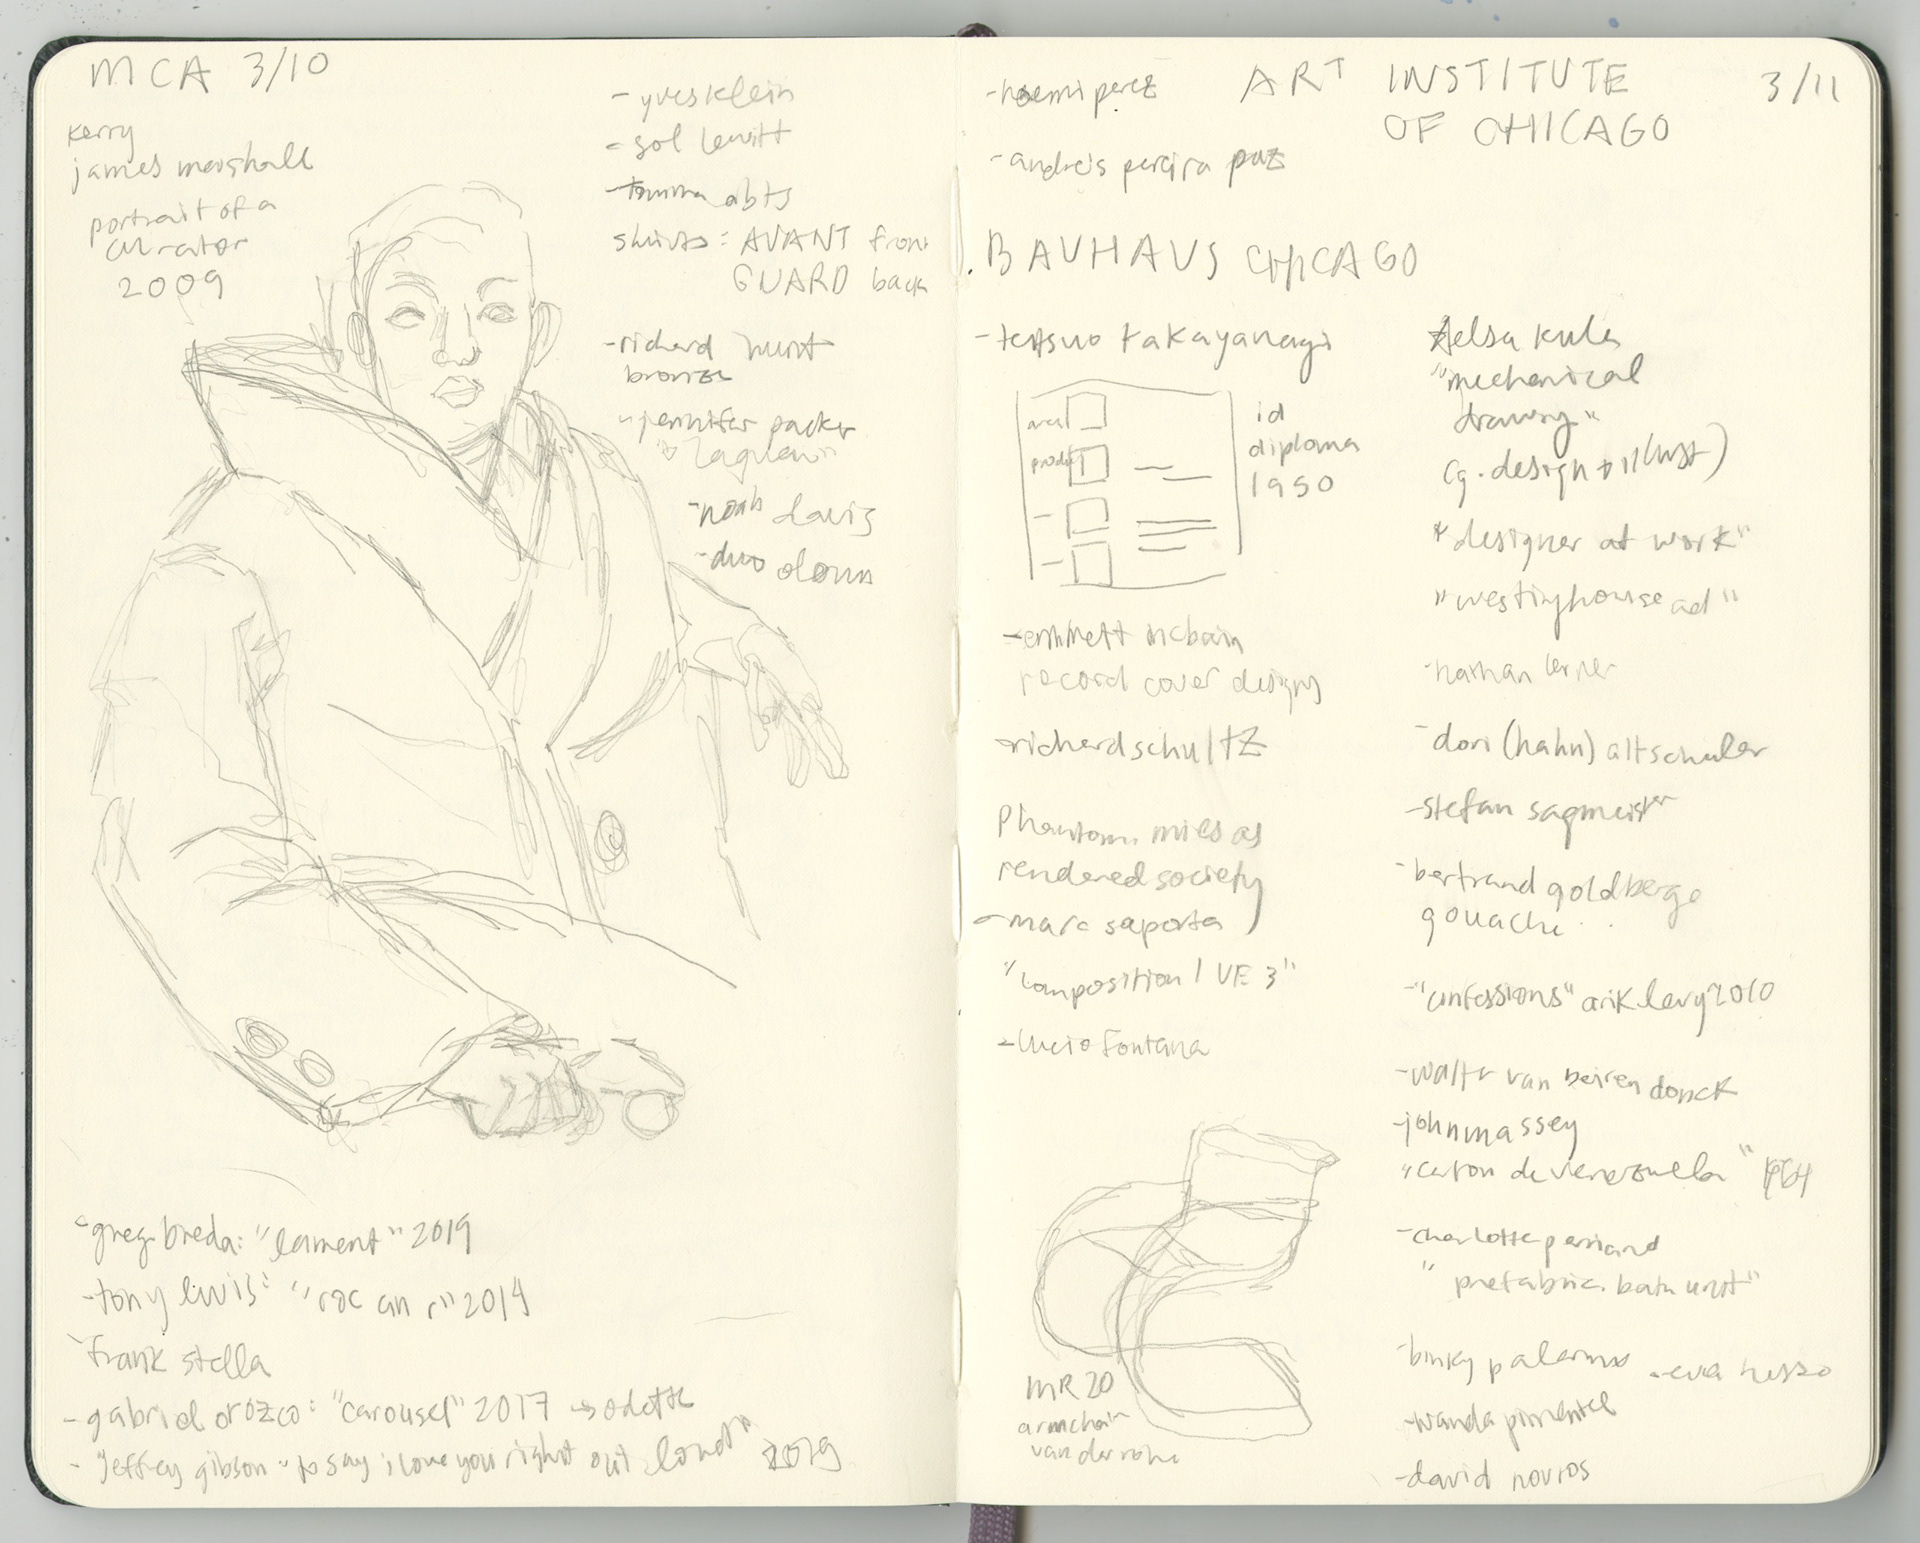 MCA 3/10
kerry
james marshall
portrait of a
curator
2009
- yves klein
- sol lewitt
- tomma abts
shirts: AVANT front
GUARD back
- richard hunt
bronze
- jennifer packer
- noah davis
- greg breda: "lament" 2019
- tony lewis:
frank stella
- gabriel orozco: "carousel" 2017 → odette
- "jeffrey gibson "to say i love you right out loud" 2019
- noemi perez
ART INSTITUTE
OF CHICAGO
3/11
- andreis pereira paz
BAUHAUS CHICAGO
- tetsuo takayanagi
id
diploma
1950
- emmett mcbain
record cover designs
- richard schultz
Phantom. mies as
rendered society
- marc saporta
"composition 1 VE 3"
- lucio fontana
MR 20
armchair
van der rohe
"mechanical
drawing"
cg. design + illust)
"designer at work"
"westinghouse ad"
- nathan lerner
- dori (hahn) altschuler
- stefan sagmeister
- bertrand goldberg
gouache
- "confessions" arik levy 2010
- walter van beirendonck
- john massey
"carton de venezuela" 1964
- charlotte perriand
"prefabric. bath unit"
- binky palermo
- eva hesse
- wanda pimentel
- david novros